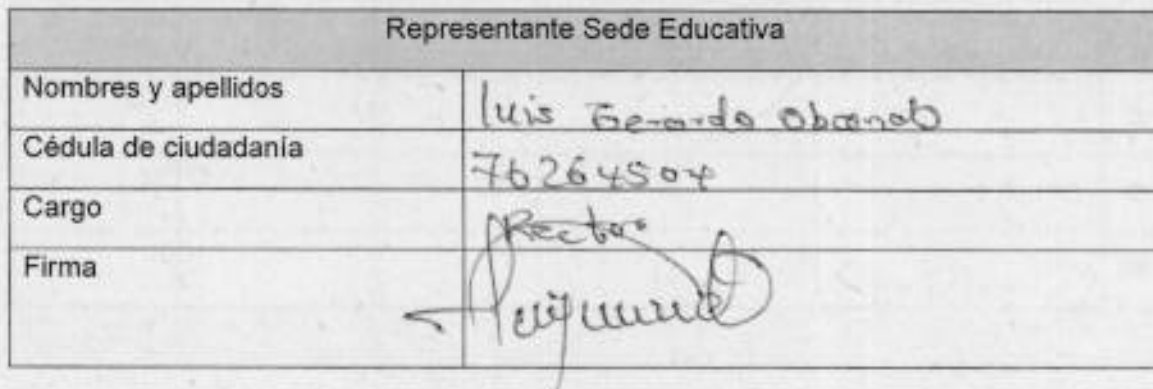 Representante Sede Educativa
Nombres y apellidos luis Gerardo Obando
Cédula de ciudadanía 76264504
Cargo Rector
Firma